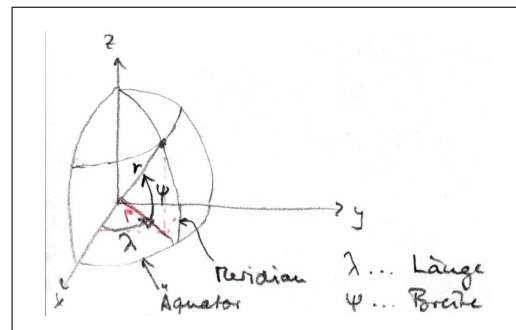 z
r
ψ
y
λ
x
Meridian
Äquator
λ ... Länge
ψ ... Breite